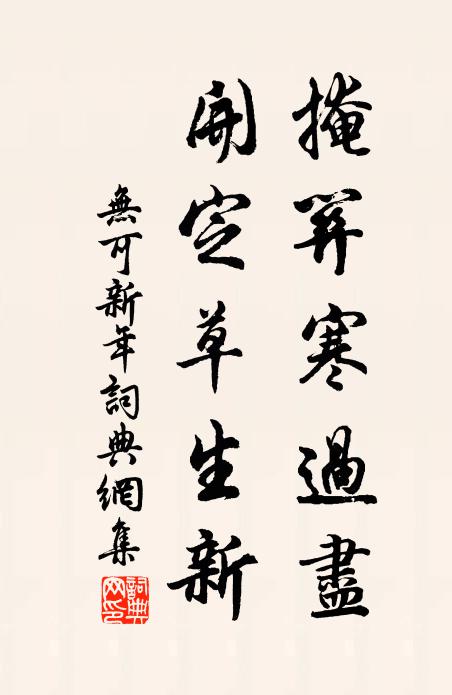 掩關寒過盡
開定草生新
無可新年詞典網集
詞典
网印